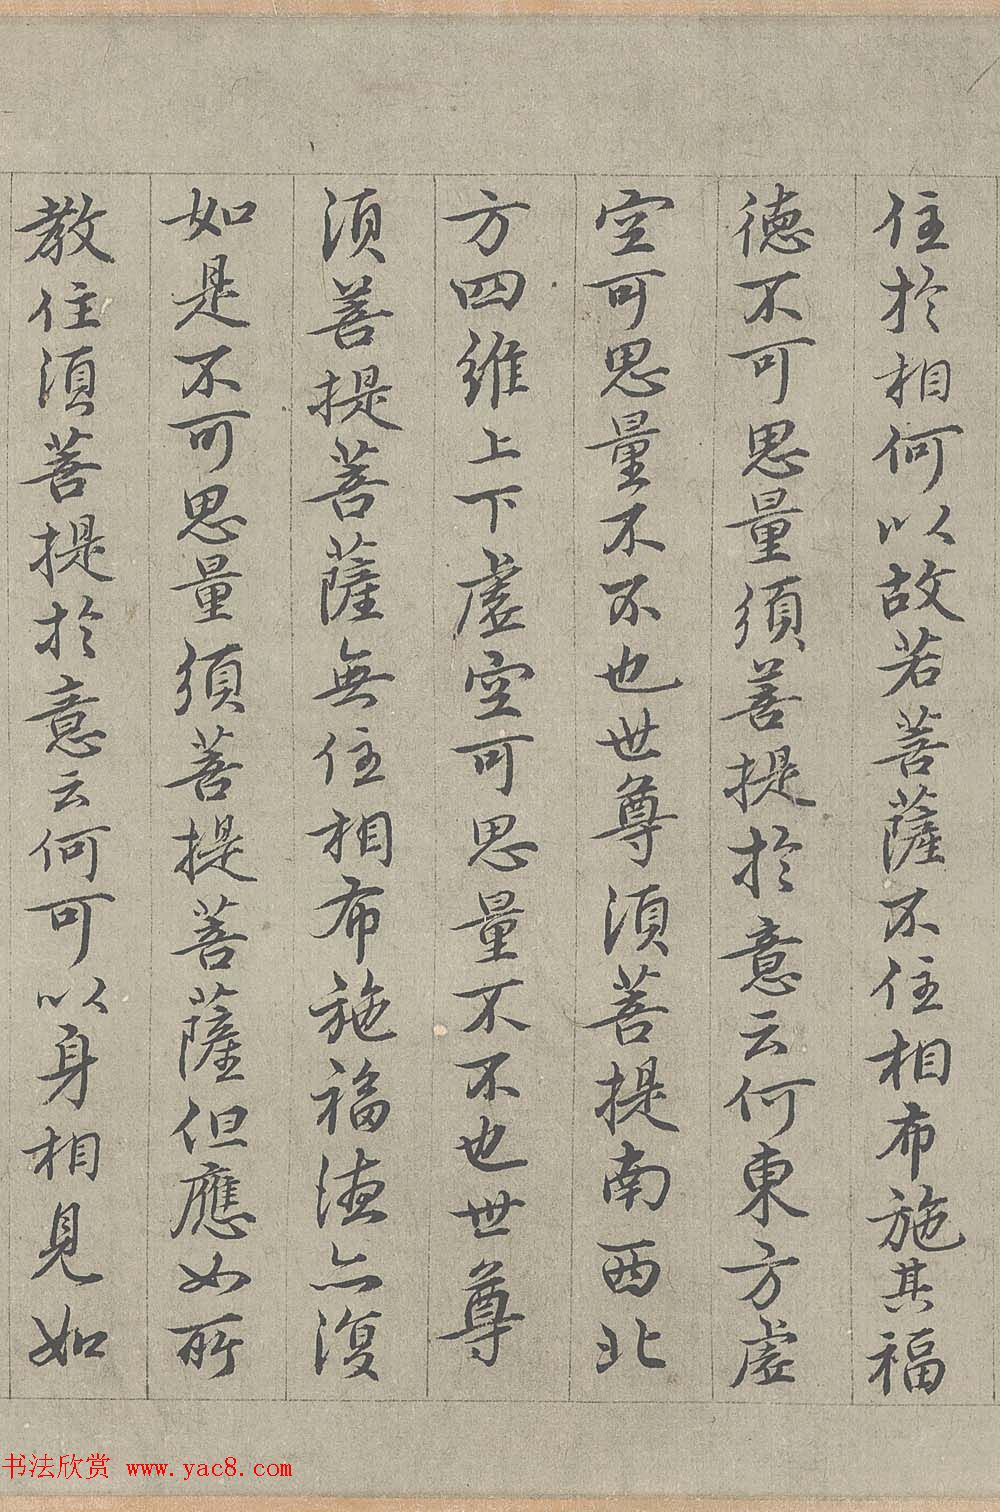 住於相何以故若菩薩不住相布施其福
德不可思量須菩提於意云何東方虛
空可思量不不也世尊須菩提南西北
方四維上下虛空可思量不不也世尊
須菩提菩薩無住相布施福德亦復
如是不可思量須菩提菩薩但應如所
教住須菩提於意云何可以身相見如
书法欣赏 www.yac8.com